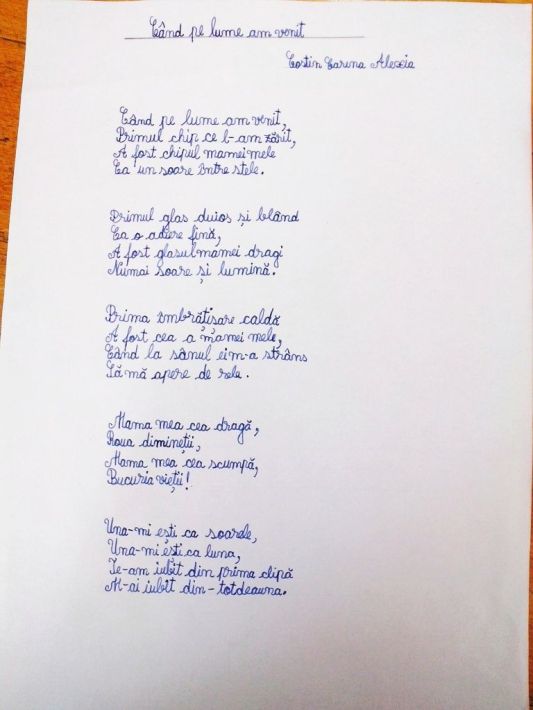 Când pe lume am venit
Costin Carina Alexia
Când pe lume am venit,
Primul chip ce l-am zărit,
A fost chipul mamei mele
Ca un soare între stele.
Primul glas duios și blând
Ca o adiere fină,
A fost glasul mamei dragi
Numai soare și lumină.
Prima îmbrățișare caldă
A fost cea a mamei mele,
Când la sânul ei m-a strâns
Să mă apere de rele.
Mama mea cea dragă,
Roua dimineții,
Mama mea cea scumpă,
Bucuria vieții!
Una-mi ești ca soarele,
Una-mi ești ca luna,
Te-am iubit din prima clipă
M-ai iubit din-totdeauna.